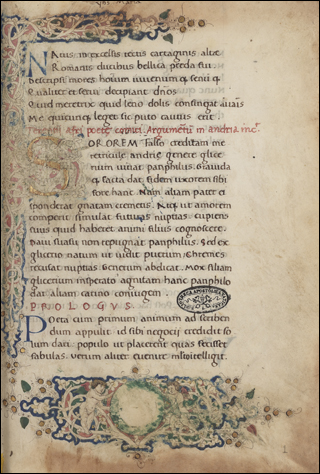 Natus in excelsis tectis cartaginis altae
Romanis ducibus bellica preda fui
Descripsi mores hominum iuvenum q; senū q;
Qualiter et servi decipiant dños
Quid meretrix quid leno dolis confingat
Me quicunq; leget sic puto cautus erit
Terentii poete comici Argumentū in andria
SOROREM falso creditam me
retriculae andriae genere glice
rium vitiat pamphilus. Gravida
q; facta dat fidem uxorem sibi
fore hanc. Nam aliam pater ei
sponderat gnatam cremetis. atq; ut amorem
comperit simulat futuras nuptias cupiens
suus quid haberet animi filius cognoscere.
Davi suasu non repugnat pamphilus. Sed ex
glicerio natum ut vidit puerum Chremes
recusat nuptias Generum abdicat. Mox filiam
glicerium insperato agnitam hanc pamphilo
dat aliam carino coniugem.
PROLOGVS.
Poeta cum primum animum ad scriben
dum appulit id sibi negocii credidit so
lum dari. populo ut placerent quas fecisset
fabulas. verum aliter evenire intelligit.
1